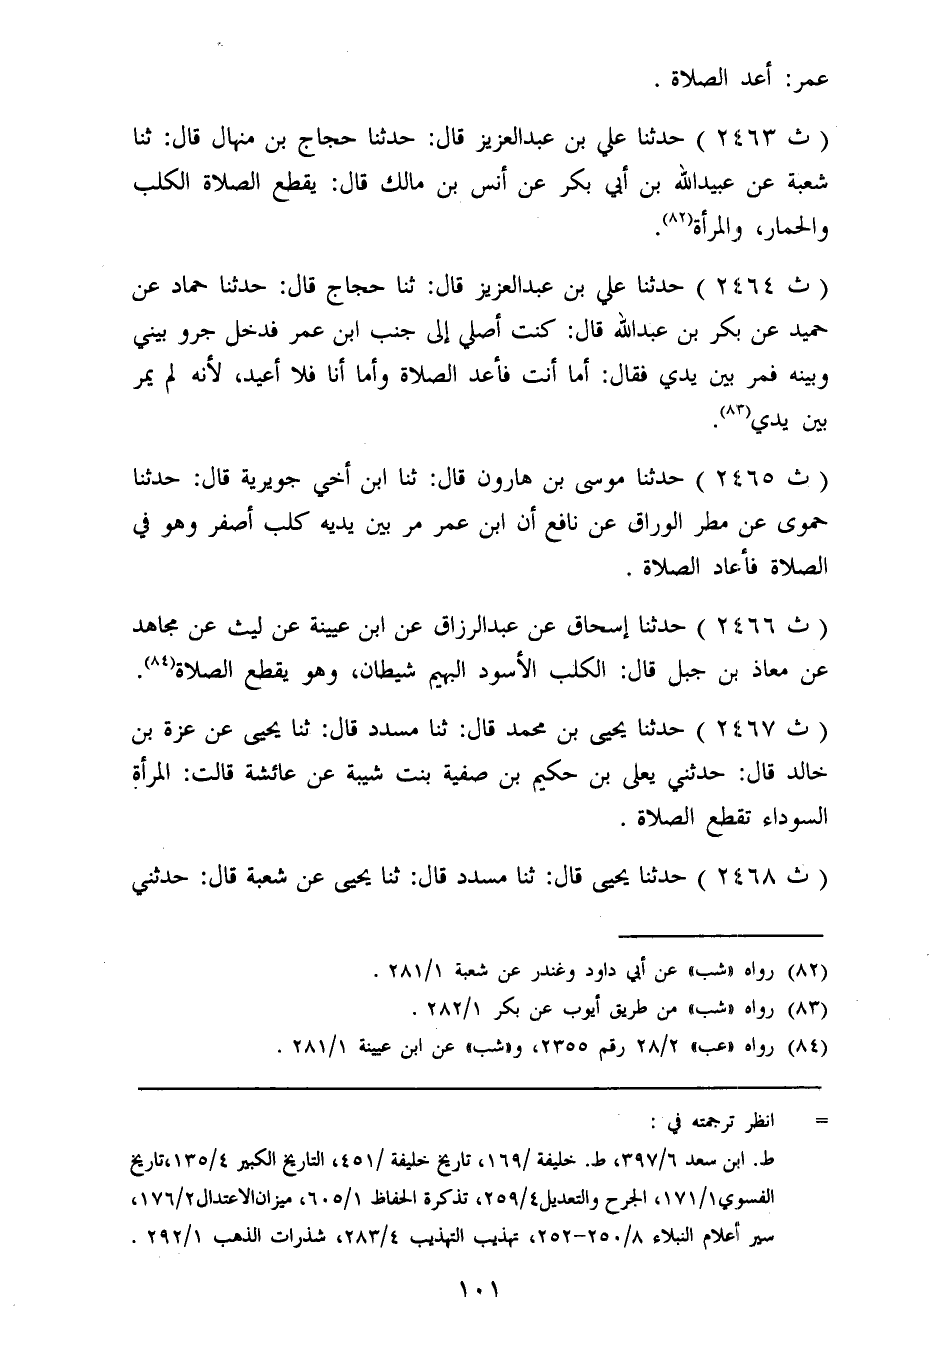 عمر: أعد الصلاة .
( ث ٢٤٦٣ ) حدثنا علي بن عبدالعزيز قال: حدثنا حجاج بن منهال قال: ثنا
شعبة عن عبيدالله بن أبي بكر عن أنس بن مالك قال: يقطع الصلاة الكلب
والحمار، والمرأة(٨٢).
( ث ٢٤٦٤ ) حدثنا علي بن عبدالعزيز قال: ثنا حجاج قال: حدثنا حماد عن
حميد عن بكر بن عبدالله قال: كنت أصلي إلى جنب ابن عمر فدخل جرو بيني
وبينه فمر بين يدي فقال: أما أنت فأعد الصلاة وأما أنا فلا أعيد، لأنه لم يمر
بين يدي(٨٣).
( ث ٢٤٦٥ ) حدثنا موسى بن هارون قال: ثنا ابن أخي جويرية قال: حدثنا
حموى عن مطر الوراق عن نافع أن ابن عمر مر بين يديه كلب أصفر وهو في
الصلاة فأعاد الصلاة .
( ث ٢٤٦٦ ) حدثنا إسحاق عن عبدالرزاق عن ابن عيينة عن ليث عن مجاهد
عن معاذ بن جبل قال: الكلب الأسود البهيم شيطان، وهو يقطع الصلاة(٨٤).
( ث ٢٤٦٧ ) حدثنا يحيى بن محمد قال: ثنا مسدد قال: ثنا يحيى عن عزة بن
خالد قال: حدثني يعلى بن حكيم بن صفية بنت شيبة عن عائشة قالت: المرأة
السوداء تقطع الصلاة .
( ث ٢٤٦٨ ) حدثنا يحيى قال: ثنا مسدد قال: ثنا يحيى عن شعبة قال: حدثني
(٨٢) رواه «شب» عن أبي داود وغندر عن شعبة ٢٨١/١ .
(٨٣) رواه «شب» من طريق أيوب عن بكر ٢٨٢/١ .
(٨٤) رواه «عب» ٢٨/٢ رقم ٢٣٥٥، و«شب» عن ابن عيينة ٢٨١/١ .
= انظر ترجمته في :
ط. ابن سعد ٣٩٧/٦، ط. خليفة /١٦٩، تاريخ خليفة /٤٥١، التاريخ الكبير ١٣٥/٤،تاريخ
الفسوي١٧١/١، الجرح والتعديل٢٥٩/٤، تذكرة الحفاظ ٦٠٥/١، ميزان الاعتدال١٧٦/٢،
سير أعلام النبلاء ٢٥٠/٨-٢٥٢، تهذيب التهذيب ٢٨٣/٤، شذرات الذهب ٢٩٢/١ .
١٠١